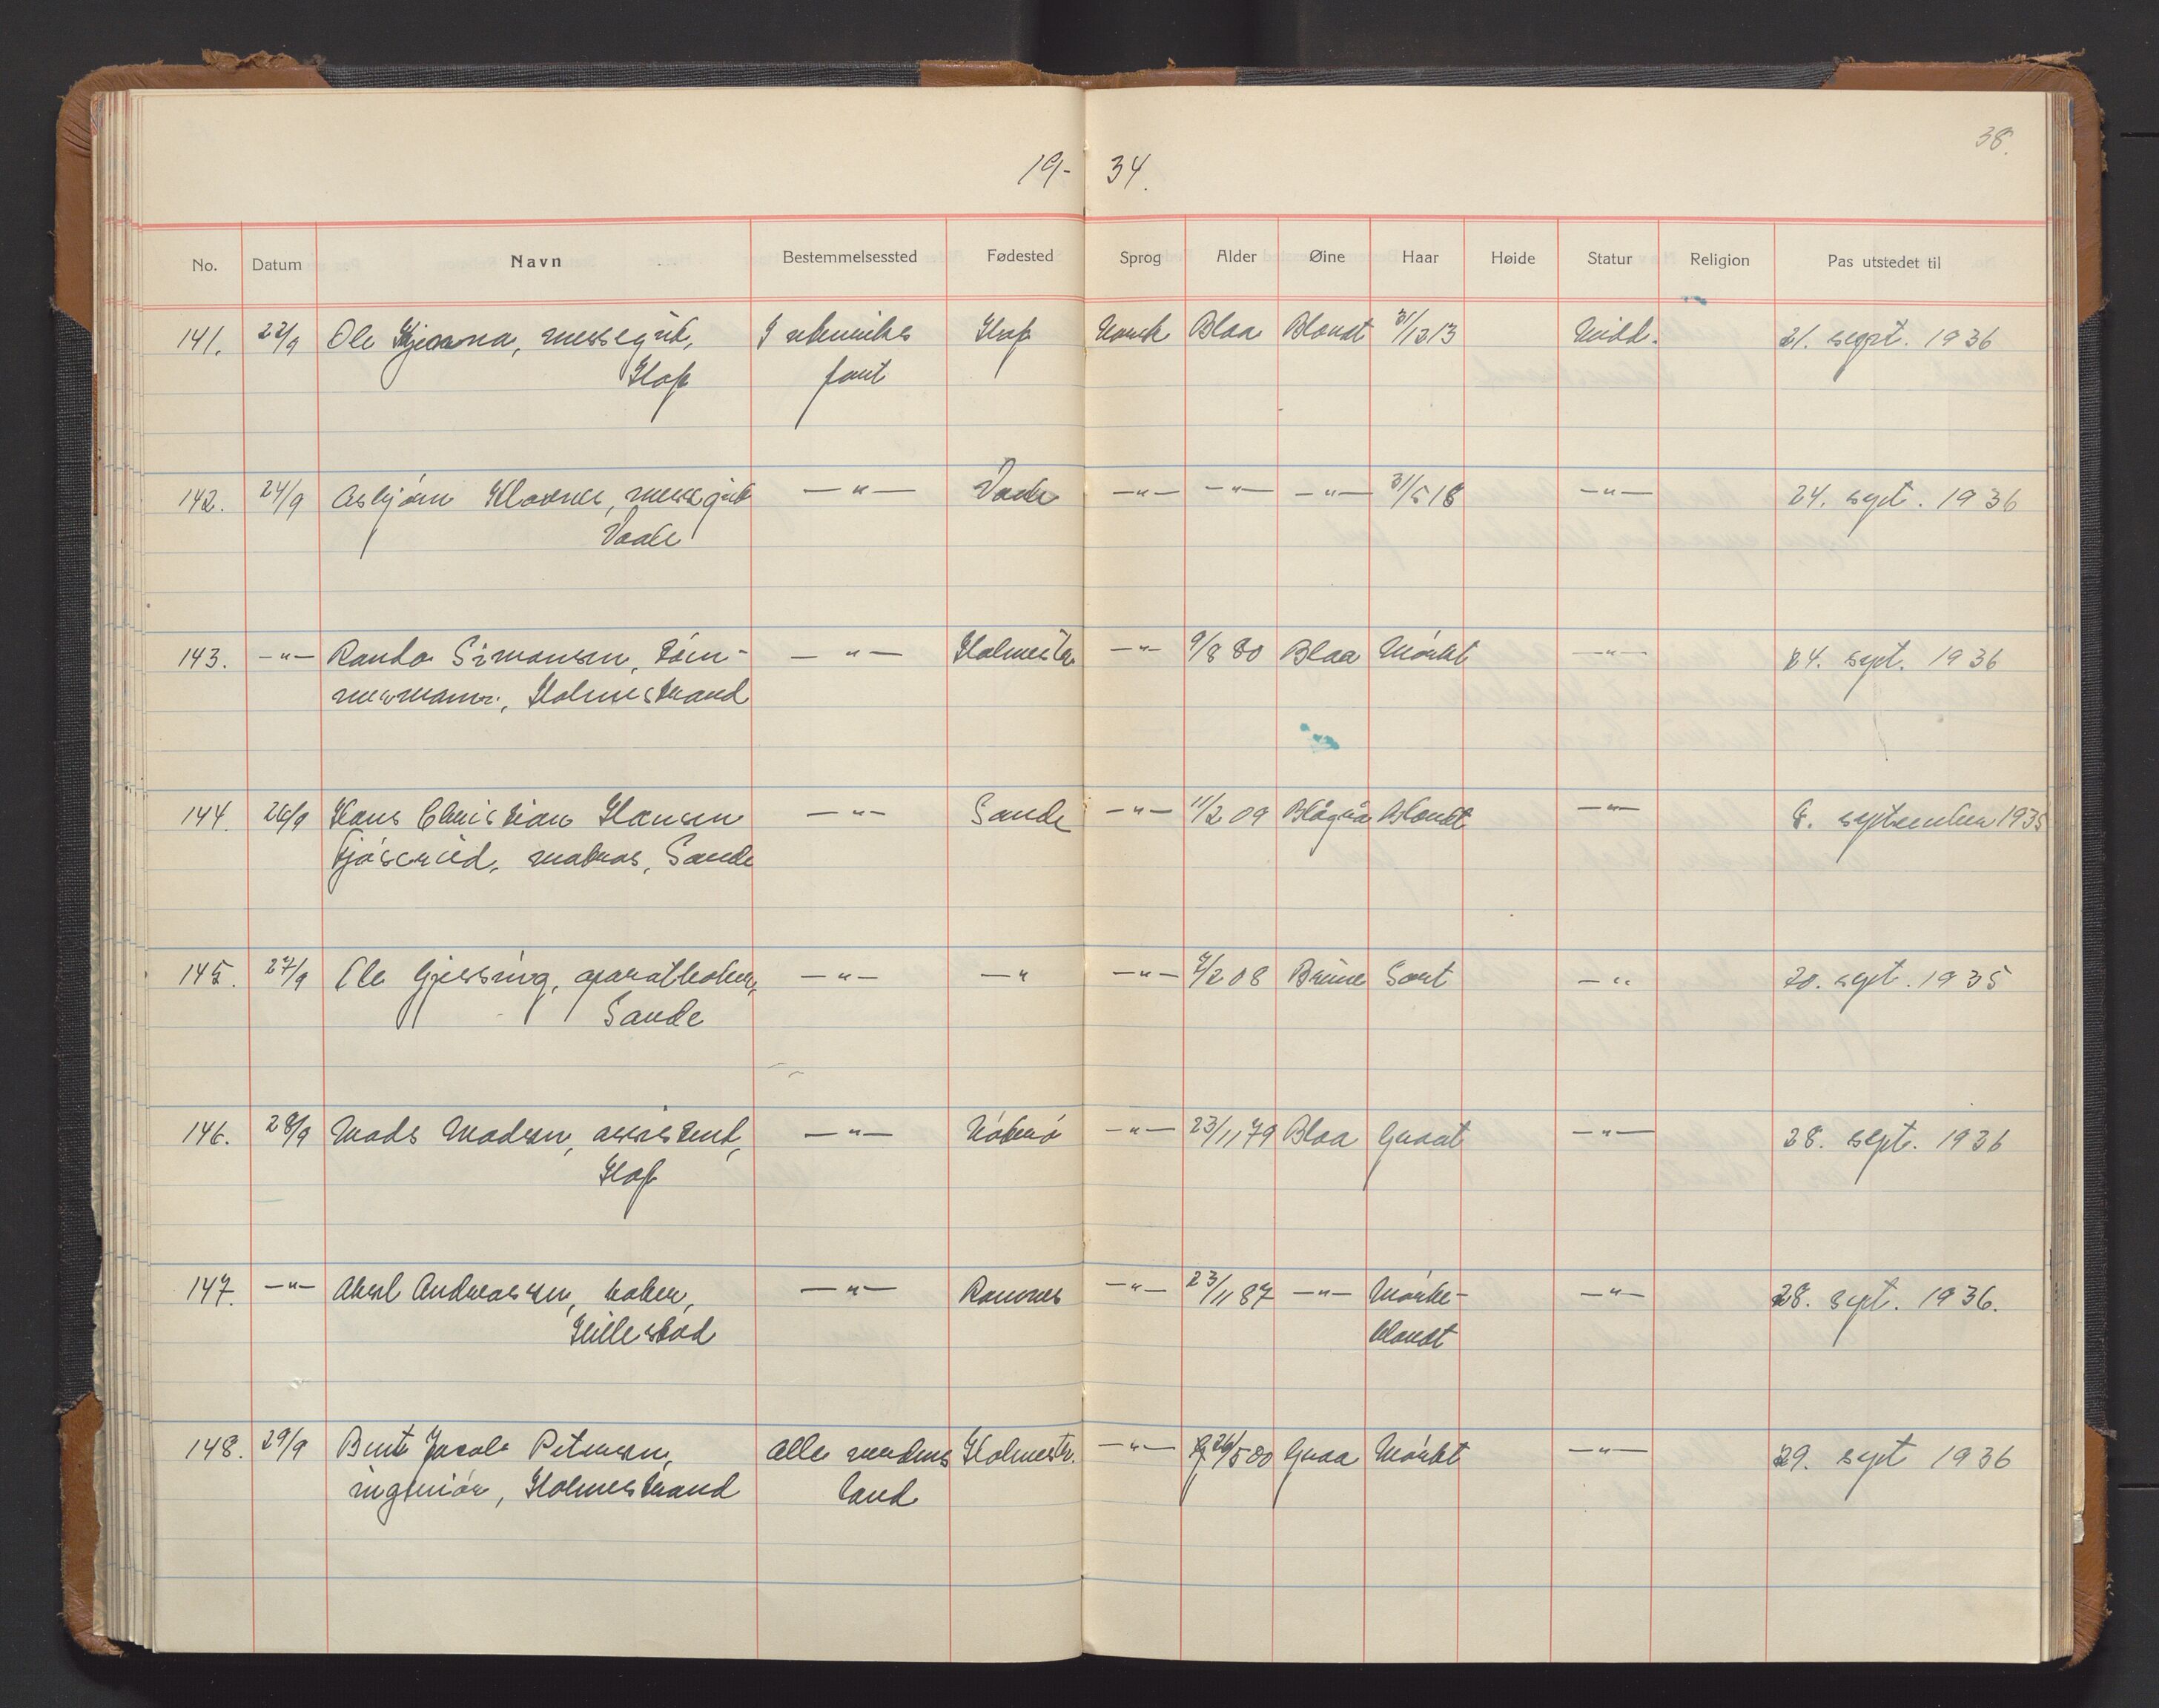 38.
19- 34.
No. Datum Navn Bestemmelsessted Fødested Sprog Alder Øine Haar Høide Statur Religion Pas utstedet til
141. 22/9 Ole messegut, I utenriks Hof Norsk Blaa Blondt 31/12 13 Midd. 21. sept. 1936
Hof fart
142. 24/9 Asbjørn Klavnes, messegut —"— Vaale —"— —"— —"— 31/5 18 —"— 24. sept. 1936
Vaale
143. —"— Simonsen, Tøm- —"— Holmestr. —"— 9/8 80 Blaa Mørkt —"— 24. sept. 1936
mermann, Holmestrand
144. 26/9 Hans Christian Hansen —"— Sande —"— 11/2 09 Blågrå Blondt —"— 8. september 1935
matros, Sande
145. 27/9 Ole Gjessing, aparatkoker, —"— —" —"— 7/2 08 Brune Sort —"— 20. sept. 1935
Sande
146. 28/9 Mads Madsen, assistent, —"— Nøterø —"— 23/11 79 Blaa Graat —"— 28. sept. 1936
Hof
147. —"— Aksel Andreassen, koker, —"— Ramnes —"— 23/11 87 —"— Mørke- —"— 28. sept. 1936.
Hillestad blondt
148. 29/9 Bent Jacob Petersen, alle verdens Holmestr. —"— 26/5 00 Graa Mørkt —"— 29. sept 1936
ingeniør, Holmestrand land